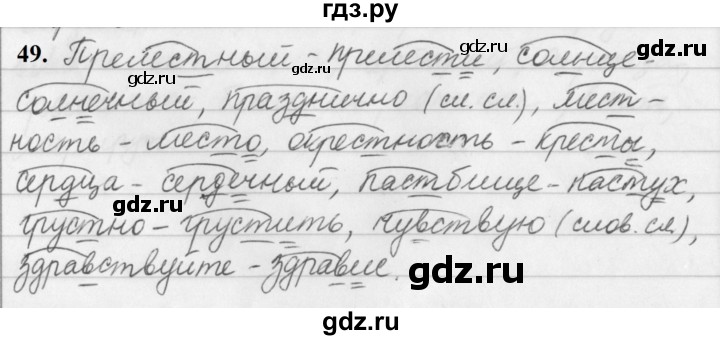 гдз.ру
49. Прелестный - прелести, солнце -
солнечный, празднично (сл. сл.), мест-
ность - место, окрестность - кресты,
сердца - сердечный, пастбище - пастух,
грустно - грустить, чувствую (слов. сл),
здравствуйте - здравие.
gdz.ru
gdz.ru
gdz.ru
gdz.ru
gdz.ru
gdz.ru